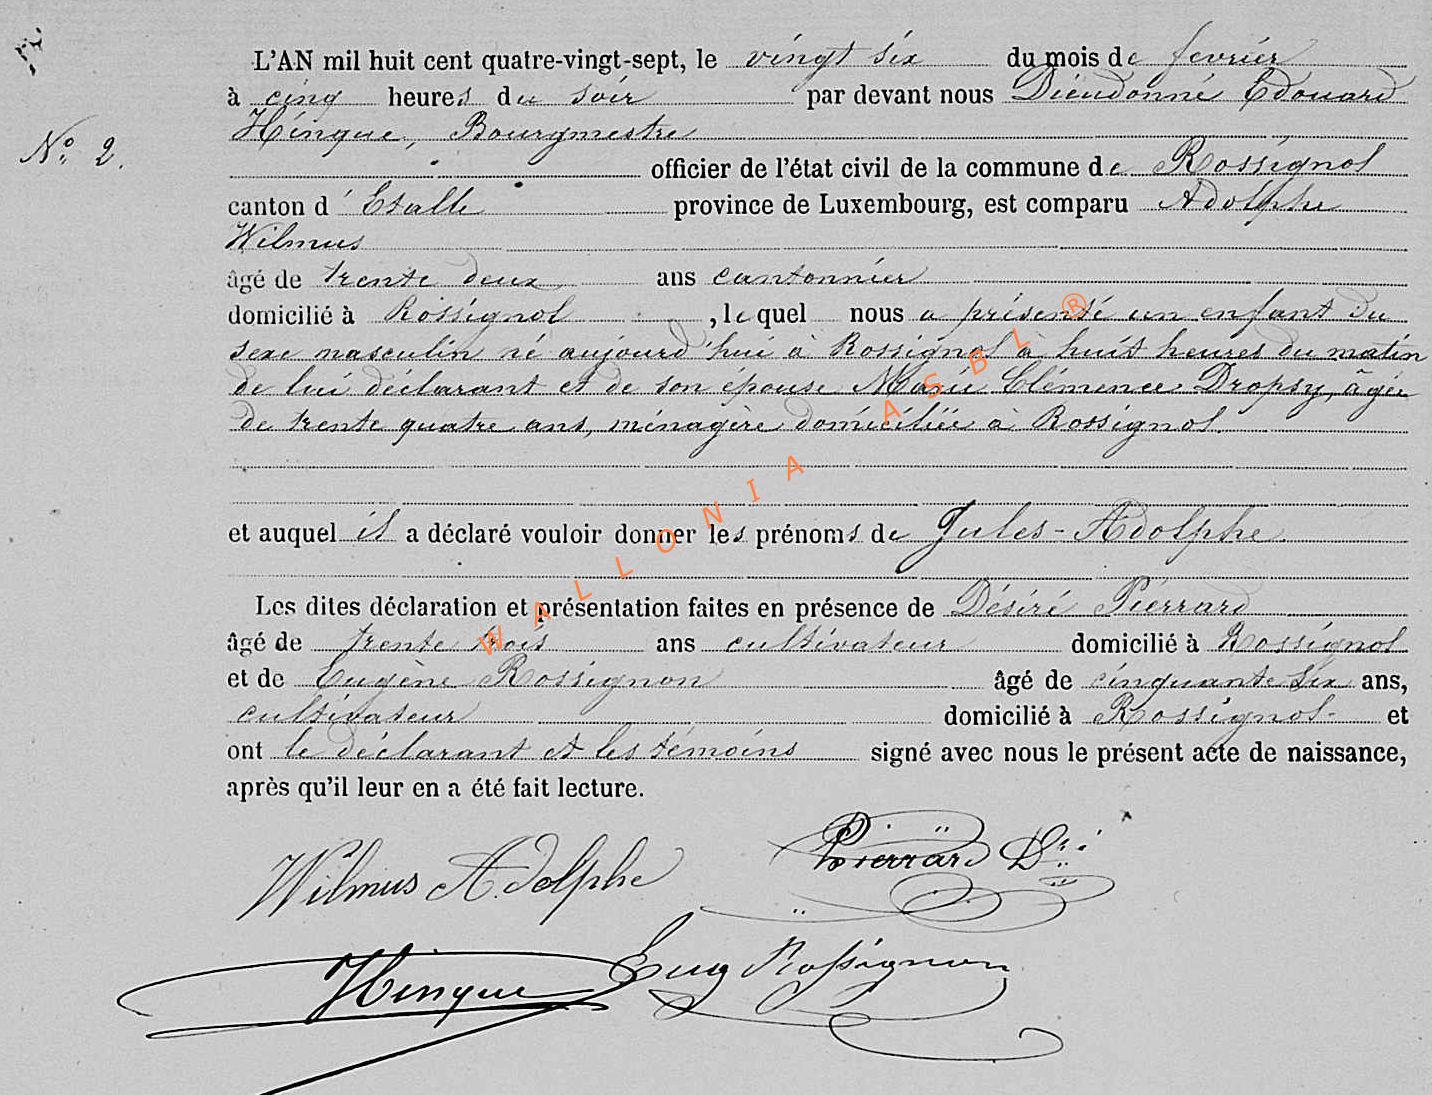 L'AN mil huit cent quatre-vingt-sept, le vingt six du mois de fevrier
à cinq heures du soir par devant nous Dieudonné Edouard
Hinque, Bourgmestre
N° 2.
officier de l'état civil de la commune de Rossignol
canton d'Etalle province de Luxembourg, est comparu Adolphe
Wilmus
âgé de trente deux ans cantonnier
domicilié à Rossignol, lequel nous a présenté un enfant du
sexe masculin né aujourd'hui à Rossignol à huit heures du matin
de lui déclarant et de son épouse Marie Clémence Dropsy, âgée
de trente quatre ans, ménagère domiciliée à Rossignol.
et auquel il a déclaré vouloir donner les prénoms de Jules-Adolphe
Les dites déclaration et présentation faites en présence de Désiré Piérrard
âgé de trente trois ans cultivateur domicilié à Rossignol
et de Eugène Rossignon âgé de cinquante six ans,
cultivateur domicilié à Rossignol et
ont le déclarant et les témoins signé avec nous le présent acte de naissance,
après qu'il leur en a été fait lecture.
Wilmus Adolphe Pierrard Dré
Hinque Eug Rossignon
WALLONIA ASBL ®